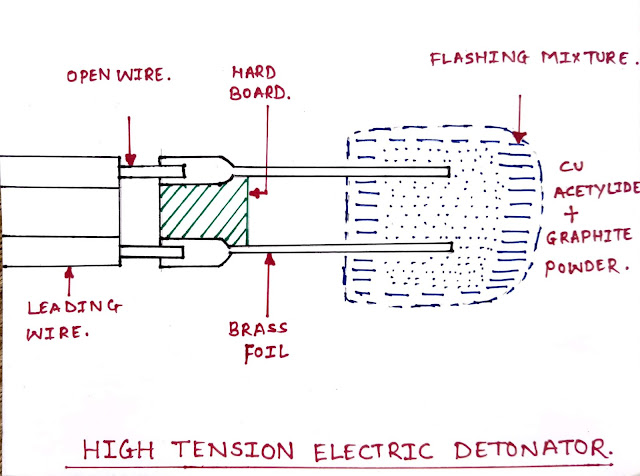 FLASHING MIXTURE.
OPEN WIRE.
HARD
BOARD.
CU
ACETYLIDE
+
GRAPHITE
POWDER.
LEADING
WIRE.
BRASS
FOIL
HIGH TENSION ELECTRIC DETONATOR.